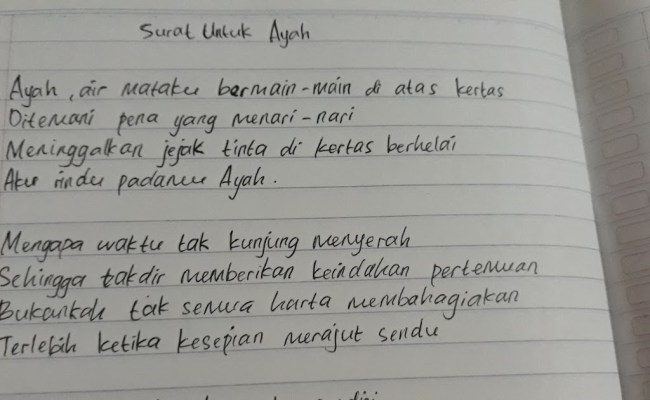 Surat Untuk Ayah
Ayah, air mataku bermain-main di atas kertas
Ditemani pena yang menari-nari
Meninggalkan jejak tinta di kertas berhelai
Aku rindu padamu Ayah.
Mengapa waktu tak kunjung menyerah
Sehingga takdir memberikan keindahan pertemuan
Bukankah tak semua harta membahagiakan
Terlebih ketika kesepian merajut sendu